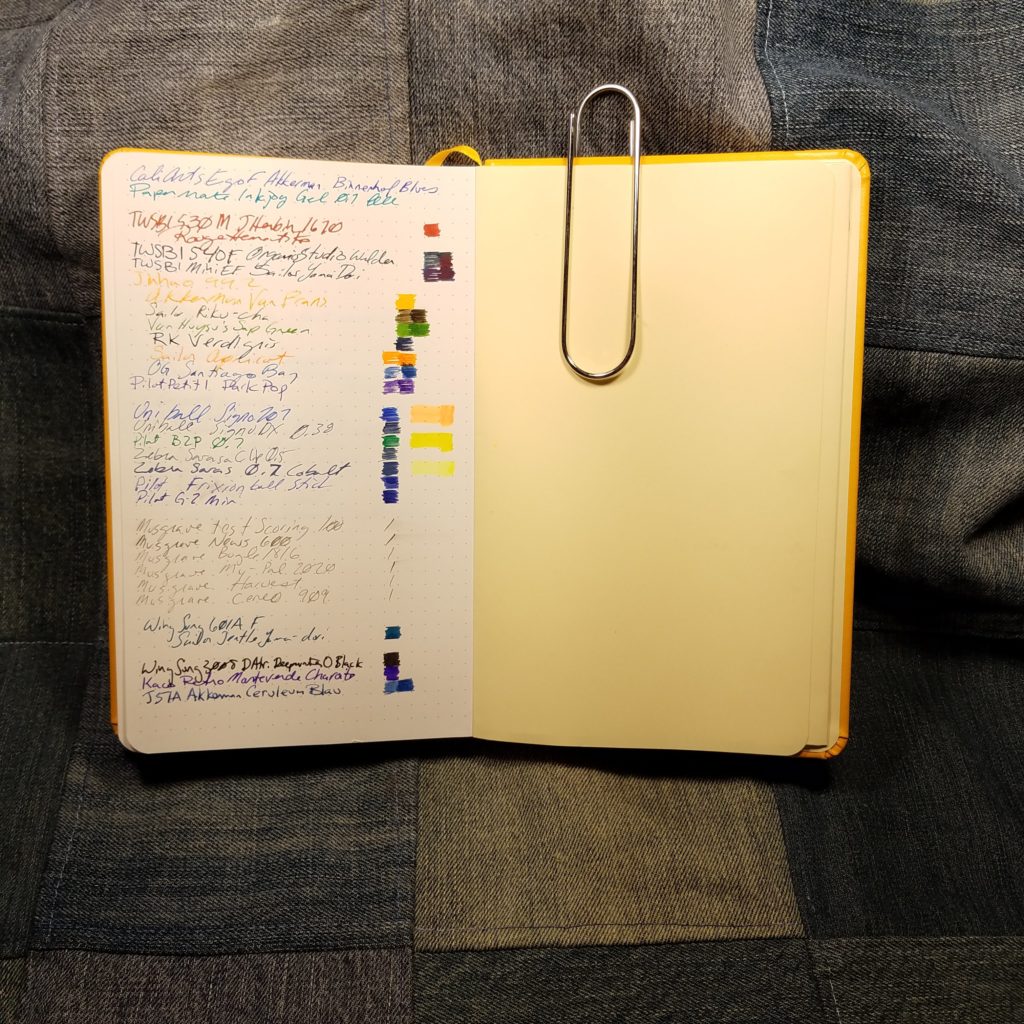 CaliArts Ego F Akkerman Binnenhof Blues
Papermate Inkjoy Gel 0.7
TWSBI 530 M J Herbin 1670
Rouge Hematite
TWSBI 540 F Organic Studio Walden
TWSBI Mini EF Sailor Yama Dori
Jinhao 992
Akkerman Van
Sailor Riku-cha
Van Huysu's Sap Green
RK Verdigris
Sailor Apricot
OG Santiago Bay
Pilot Petit 1 Dark Pop
Uni ball Signo 207
Uniball Signo DX 0.38
Pilot B2P 0.7
Zebra Sarasa Clip 0.5
Zebra Saras 0.7 Cobalt
Pilot Frixion ball Stick
Pilot G-2 Mini
Musgrave test Scoring 100
Musgrave News 600
Musgrave Bugle 1816
Musgrave My-Pal 2020
Musgrave Harvest
Musgrave Ceres 909
Wing Sung 601A F
Sailor Jentle Yama-dori
Wing Sung 3008 D Atr. Document O Black
Kaco Retro Monteverde Charoite
51A Akkerman Ceruleum Blau